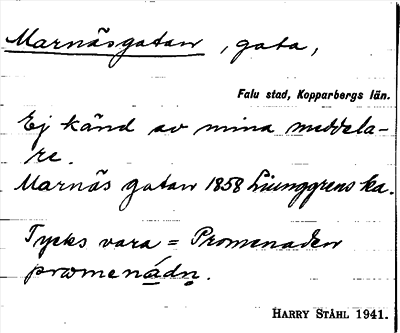 Marnäsgatan, gata,
Falu stad, Kopparbergs län.
Ej känd av mina meddela-
re.
Marnäs gatan 1858 Liunggrens ka.
Tycks vara = Promenaden
promenádn.
HARRY STÅHL 1941.